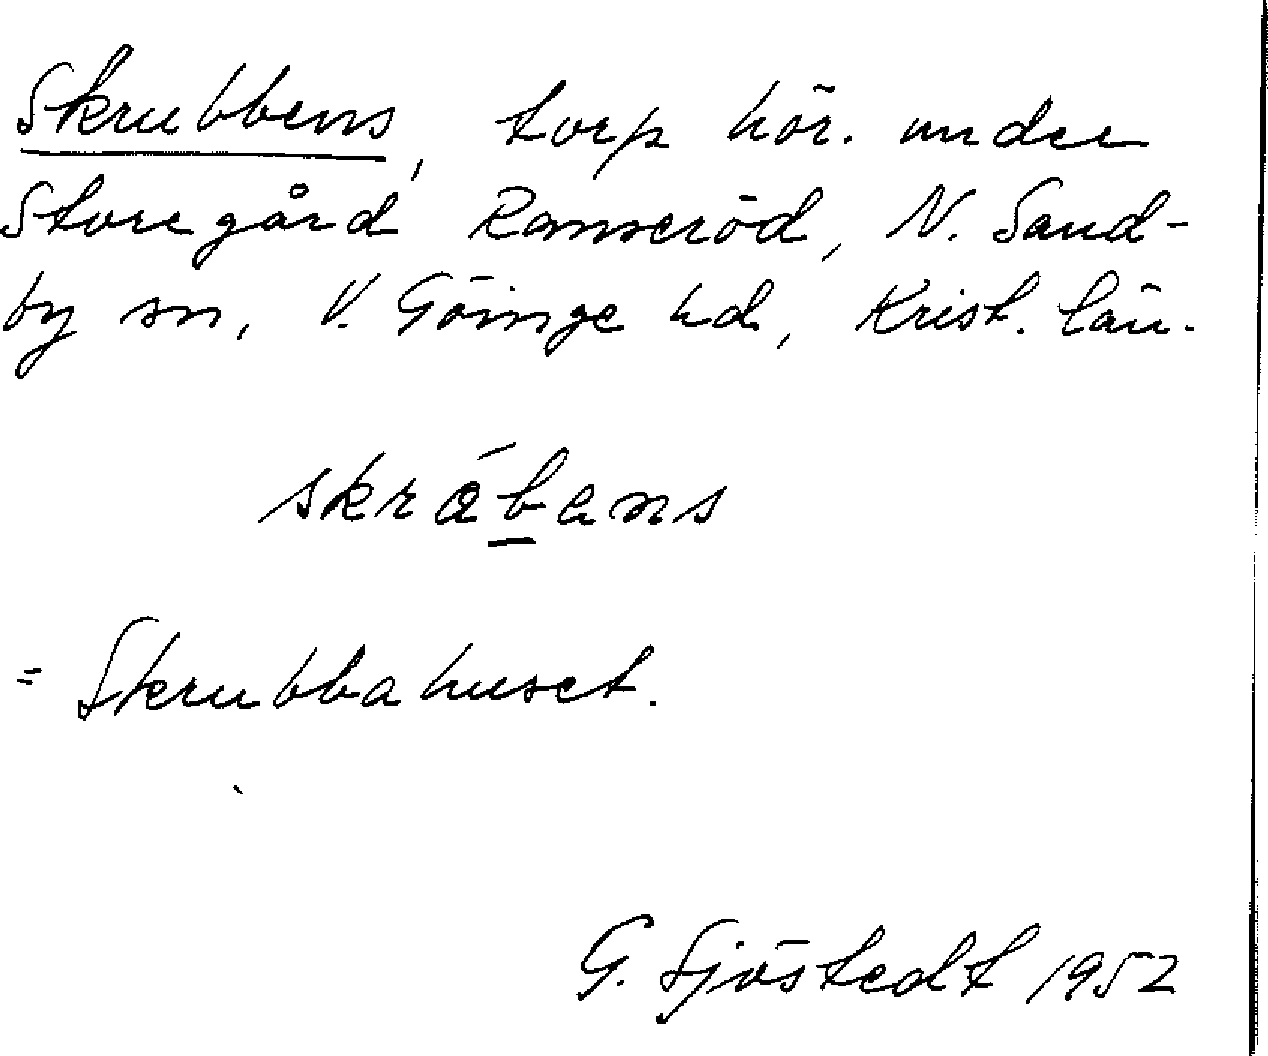 Skrubbens, torp hör. under
Storegård Ramseröd, N. Sand-
by sn, V. Göinge hd, Krist. län.
skrábans
= Skrubbahuset.
G. Sjöstedt 1952